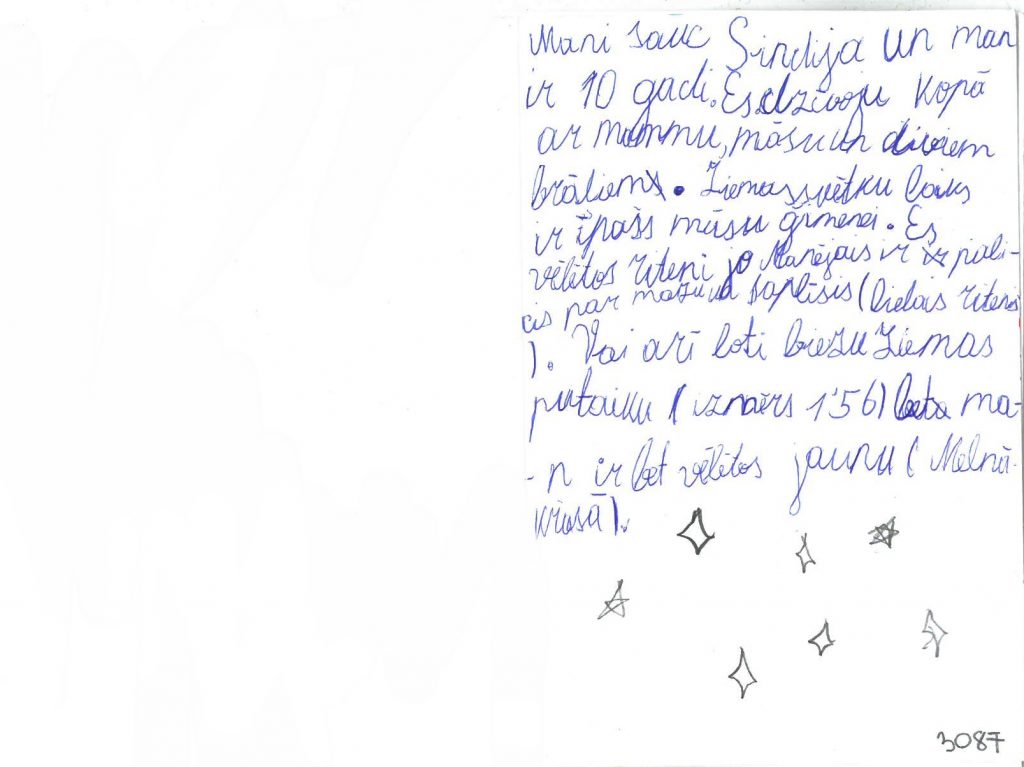 Mani sauc Sindija un man
ir 10 gadi. Es dzīvoju kopā
ar mammu, māsu un diviem
brāliem. Ziemassvētku laiks
ir īpašs mūsu ģimenei. Es
vēlētos riteni jo Manējais ir pali-
cis par mazu un saplīsis (Lielais ritenis
). Vai arī ļoti biezu Ziemas
putaiku (izmērs 1'56) ma-
-n ir bet vēlētos jaunu (Melnā
krāsā).
3087